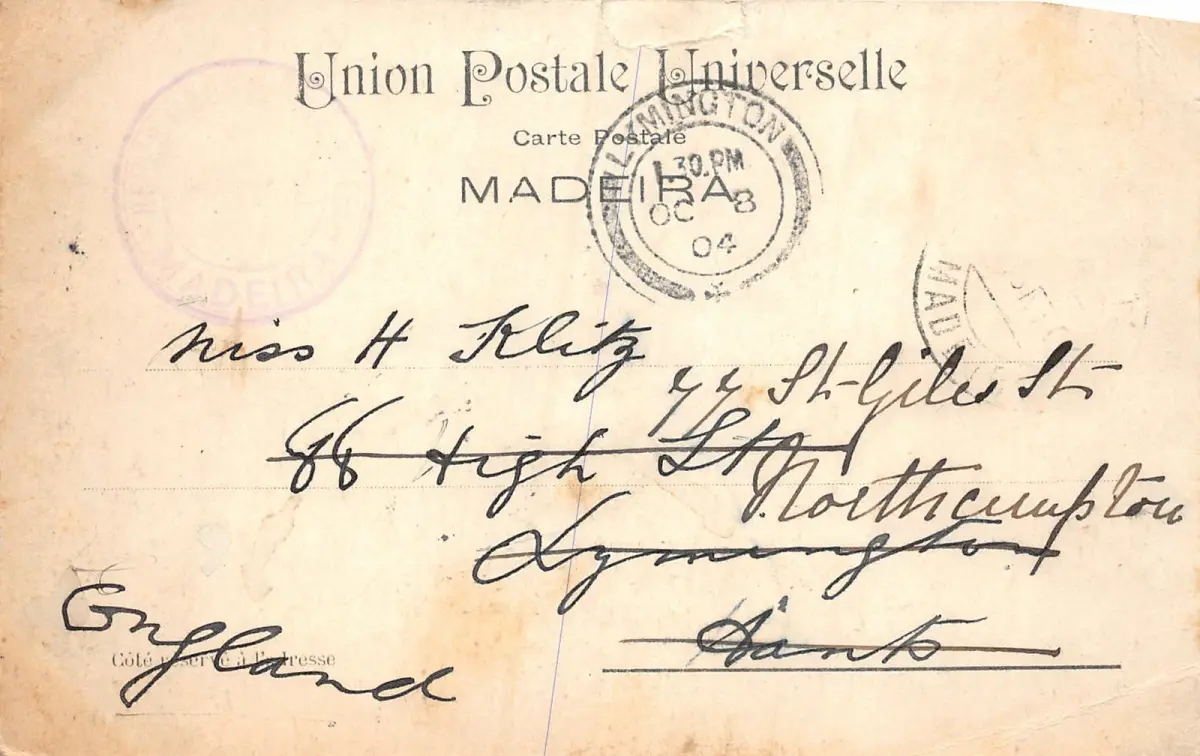 Union Postale Universelle
Carte Postale
MADEIRA
LYMINGTON
1.30.PM
OC 8
04
MADEIRA
MAD
Miss H Klitz
77 St Giles St
88 High St
Northampton
Lymington
Hants
England
Côté réservé à l'adresse